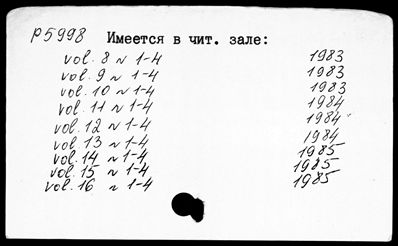 P5998 Имеется в чит. зале:
vol. 8 N 1-4 1983
vol. 9 N 1-4 1983
vol. 10 N 1-4 1983
vol. 11 N 1-4 1984
vol. 12 N 1-4 1984
vol. 13 N 1-4 1984
vol. 14 N 1-4 1985
vol. 15 N 1-4 1985
vol. 16 N 1-4 1985